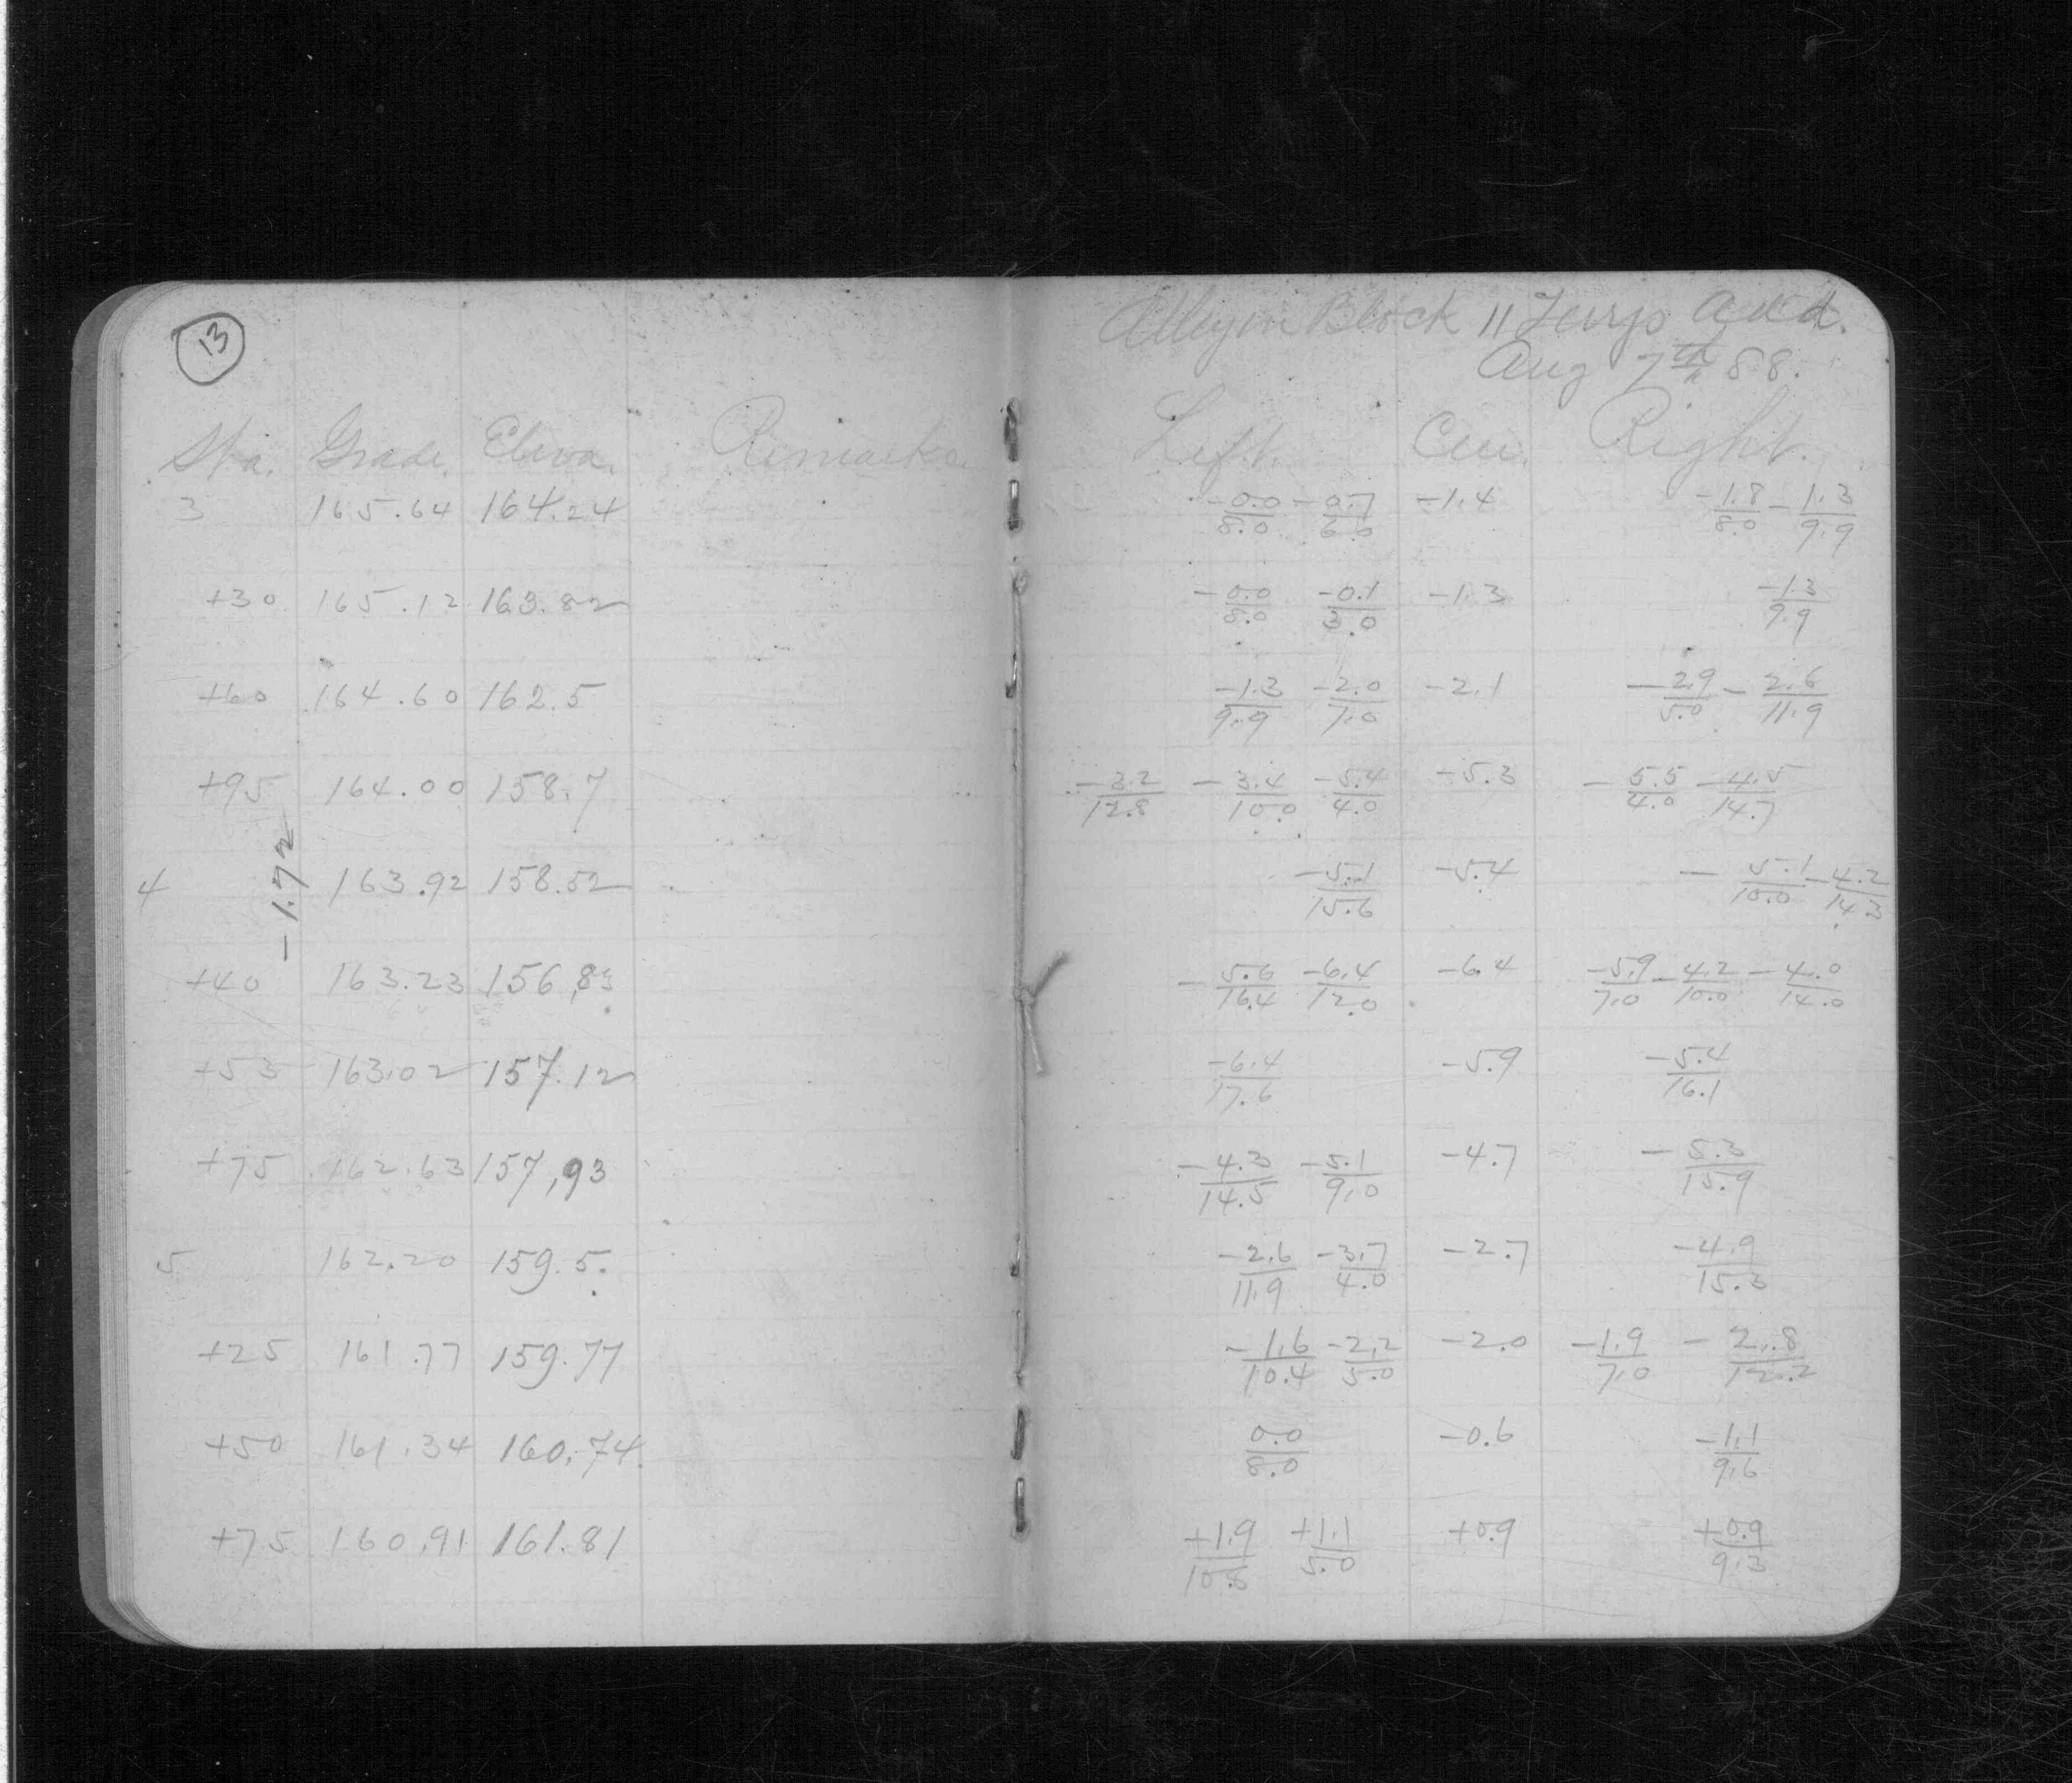 13
Alley in Block 11 Terrys add.
Aug 7th 88.
Sta. Grade. Eleva. Remarks. Left. Cen. Right.
3 165.64 164.24 -0.0/8.0 -0.7/6.0 -1.4 -1.8/8.0 -1.3/9.9
+30 165.12 163.82 -0.0/8.0 -0.1/3.0 -1.3 -1.3/9.9
+60 164.60 162.5 -1.3/9.9 -2.0/7.0 -2.1 -2.9/5.0 -2.6/11.9
+95 164.00 158.7 -3.2/12.8 -3.4/10.0 -5.4/4.0 -5.3 -5.5/4.0 -4.5/14.7
-1.72
4 163.92 158.52 -5.1/15.6 -5.4 -5.1/10.0 -4.2/14.3
+40 163.23 156.83 -5.6/16.4 -6.4/12.0 -6.4 -5.9/7.0 -4.2/10.0 -4.0/14.0
+53 163.02 157.12 -6.4/17.6 -5.9 -5.4/16.1
+75 162.63 157,93 -4.3/14.5 -5.1/9.0 -4.7 -5.3/15.9
5 162.20 159.5. -2.6/11.9 -3.7/4.0 -2.7 -4.9/15.3
+25 161.77 159.77 -1.6/10.4 -2.2/5.0 -2.0 -1.9/7.0 -2.8/12.2
+50 161.34 160.74. 0.0/8.0 -0.6 -1.1/9.6
+75 160.91 161.81 +1.9/10.8 +1.1/5.0 +0.9 +0.9/9.3